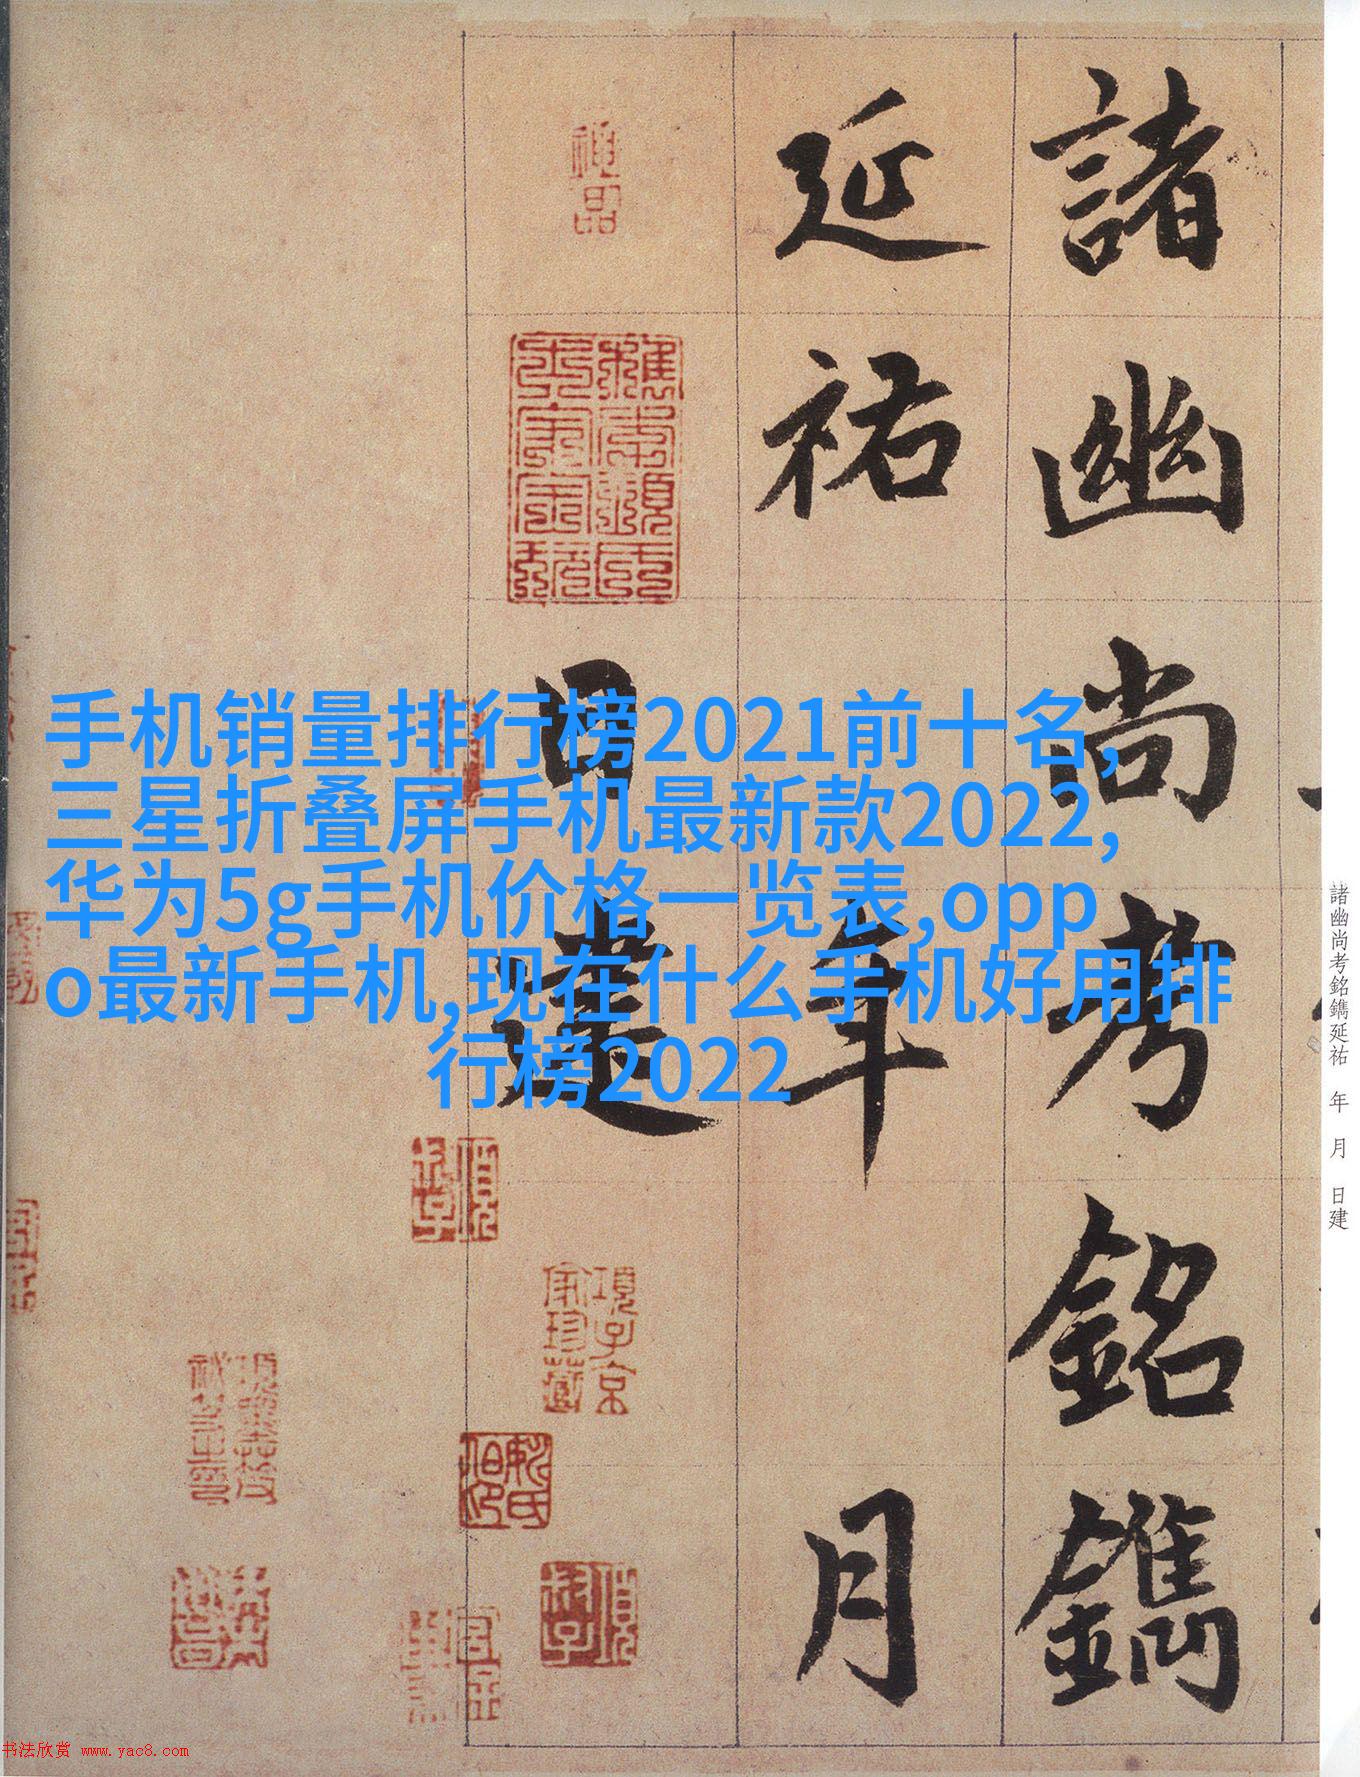 諸幽尚考銘鐫
延祐 年 月
日建
手机销量排行榜2021前十名,
三星折叠屏手机最新款2022,
华为5g手机价格一览表,opp
o最新手机,现在什么手机好用排
行榜2022
諸幽尚考銘鐫延祐 年 月 日建
項子京
家珍藏
书法欣赏 www.yac8.com